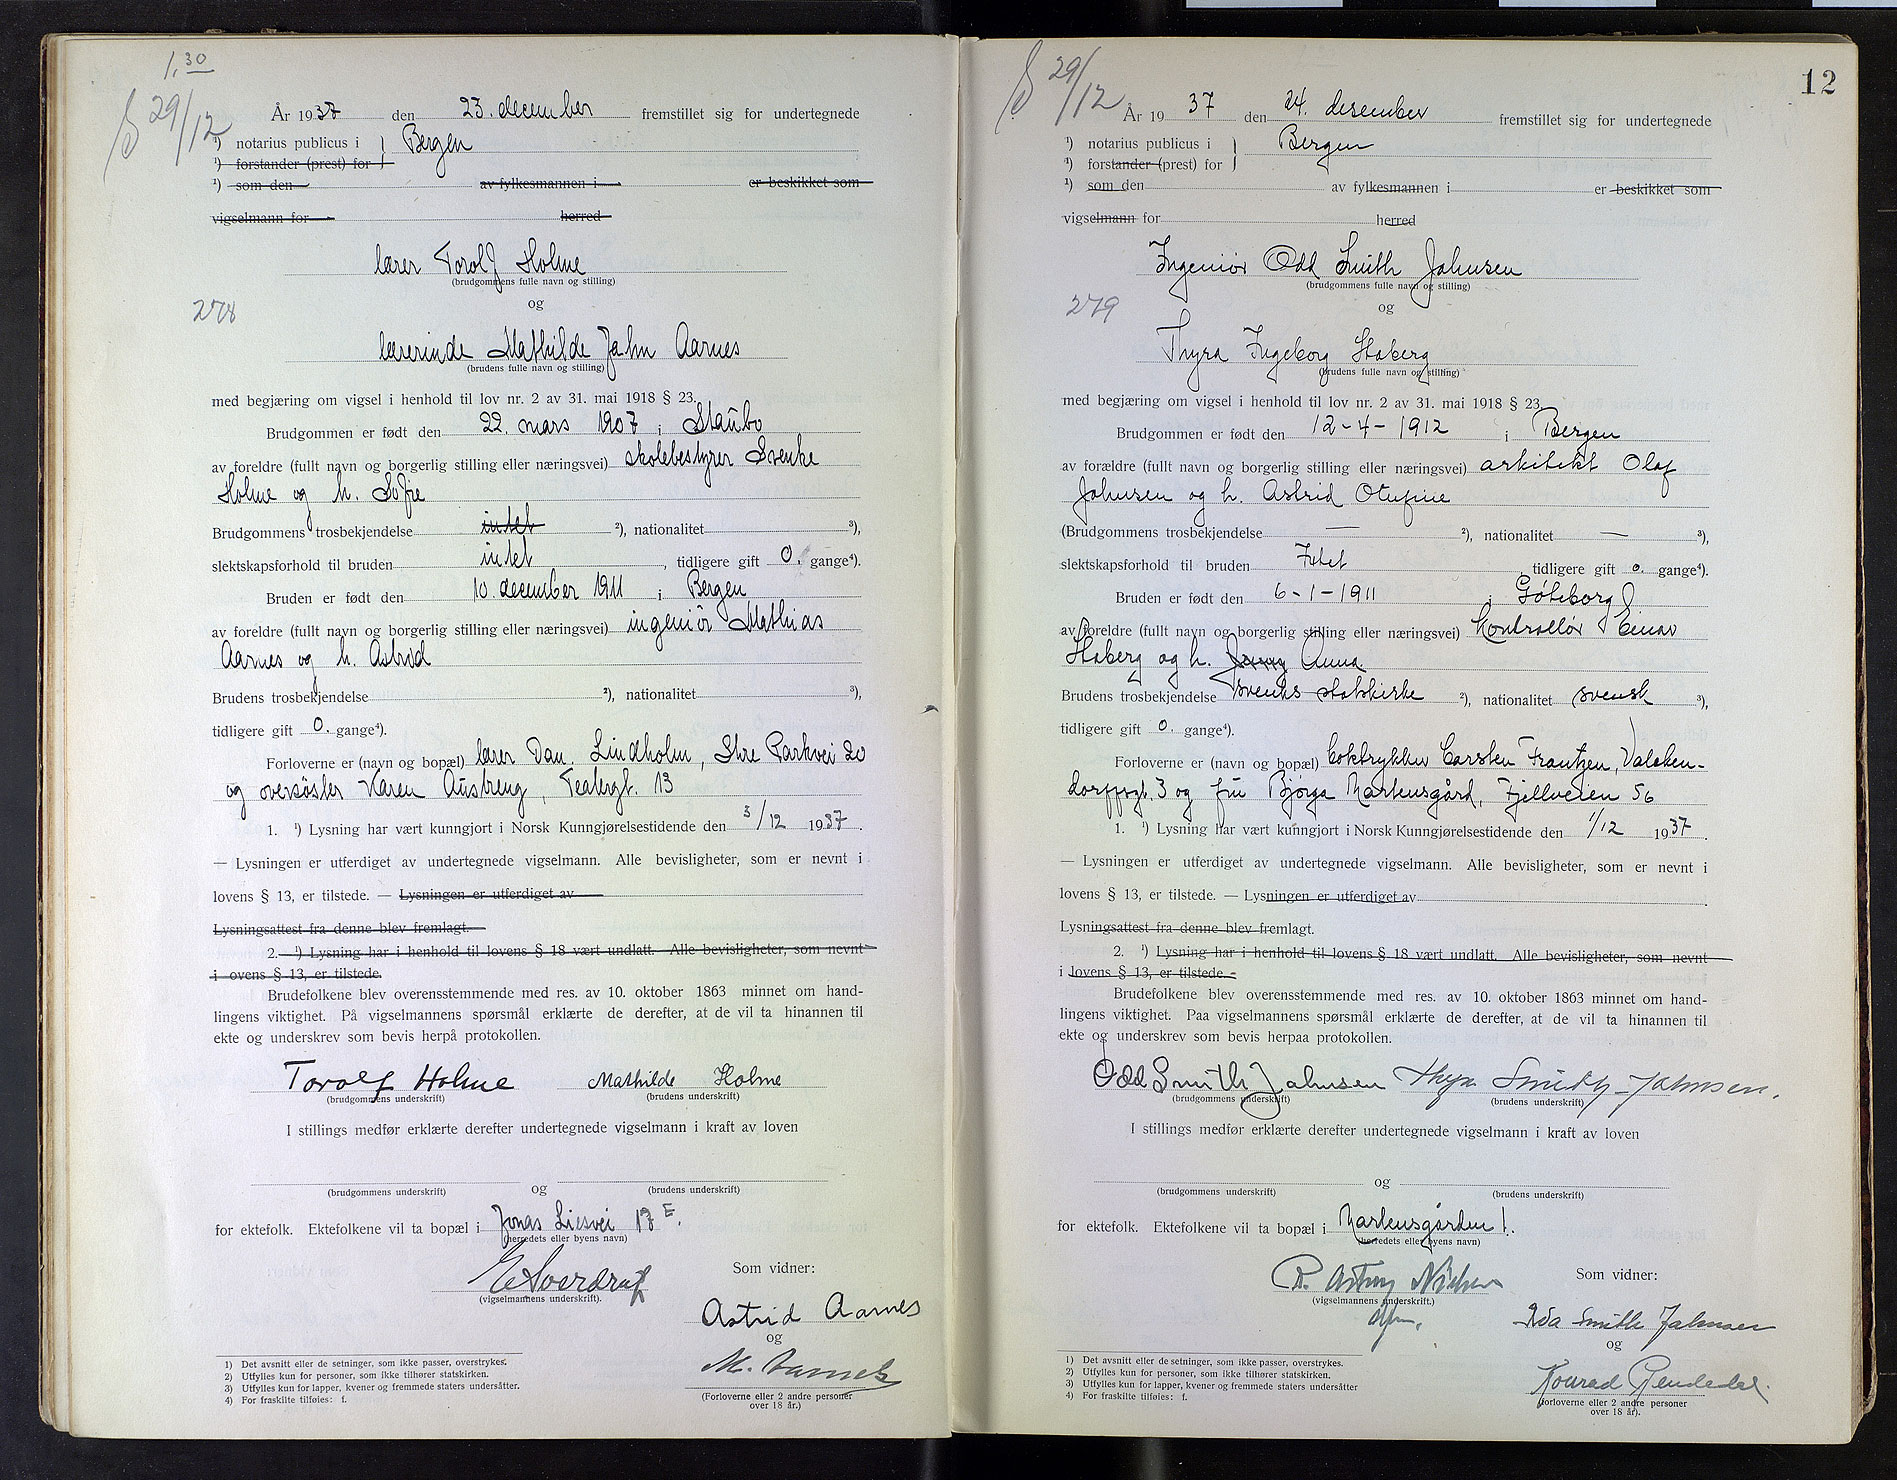 1.30
29/12
År 1937 den 23. december fremstillet sig for undertegnede
¹) notarius publicus i } Bergen
¹) forstander (prest) for }
¹) som den av fylkesmannen i er beskikket som
vigselmann for herred
lærer Torolf Holme
(brudgommens fulle navn og stilling)
og
278
lærerinde Mathilde Jahn Aarnes
(brudens fulle navn og stilling)
med begjæring om vigsel i henhold til lov nr. 2 av 31. mai 1918 § 23.
Brudgommen er født den 22. mars 1907 i Staubo
av foreldre (fullt navn og borgerlig stilling eller næringsvei) skolebestyrer Svenke
Holme og h. Sofie
Brudgommens trosbekjendelse intet ²), nationalitet ³),
slektskapsforhold til bruden intet, tidligere gift 0. gange⁴).
Bruden er født den 10. december 1911 i Bergen
av foreldre (fullt navn og borgerlig stilling eller næringsvei) ingeniör Mathias
Aarnes og h. Astrid
Brudens trosbekjendelse ²), nationalitet ³),
tidligere gift 0. gange⁴).
Forloverne er (navn og bopæl) lærer Dan. Lindholm, Stre Parkvei 20
og oversöster Karen Austreng, Teatergt. 13
1. ¹) Lysning har vært kunngjort i Norsk Kunngjørelsestidende den 3/12 1937.
— Lysningen er utferdiget av undertegnede vigselmann. Alle bevisligheter, som er nevnt i
lovens § 13, er tilstede. — Lysningen er utferdiget av
Lysningsattest fra denne blev fremlagt.
2. ¹) Lysning har i henhold til lovens § 18 vært undlatt. Alle bevisligheter, som nevnt
i ovens § 13, er tilstede.
Brudefolkene blev overensstemmende med res. av 10. oktober 1863 minnet om hand-
lingens viktighet. På vigselmannens spørsmål erklærte de derefter, at de vil ta hinannen til
ekte og underskrev som bevis herpå protokollen.
Torolf Holme Mathilde Holme
(brudgommens underskrift) (brudens underskrift)
I stillings medfør erklærte derefter undertegnede vigselmann i kraft av loven
og
(brudgommens underskrift) (brudens underskrift)
for ektefolk. Ektefolkene vil ta bopæl i Jonas Liesvei 17 E.
(herredets eller byens navn)
E Sverdrup
(vigselmannens underskrift).
Som vidner:
Astrid Aarnes
og
M. Aarnes
(Forloverne eller 2 andre personer
over 18 år.)
1) Det avsnitt eller de setninger, som ikke passer, overstrykes.
2) Utfylles kun for personer, som ikke tilhører statskirken.
3) Utfylles kun for lapper, kvener og fremmede staters undersåtter.
4) For fraskilte tilføies: f.
12
29/12
År 1937 den 24. desember fremstillet sig for undertegnede
¹) notarius publicus i } Bergen
¹) forstander (prest) for }
¹) som den av fylkesmannen i er beskikket som
vigselmann for herred
Ingeniør Odd Smith Jahnsen
(brudgommens fulle navn og stilling)
og
279
Thyra Ingeborg Staberg
(brudens fulle navn og stilling)
med begjæring om vigsel i henhold til lov nr. 2 av 31. mai 1918 § 23.
Brudgommen er født den 12-4-1912 i Bergen
av forældre (fullt navn og borgerlig stilling eller næringsvei) arkitekt Olaf
Jahnsen og h. Astrid
(Brudgommens trosbekjendelse — ²), nationalitet — ³),
slektskapsforhold til bruden Intet, tidligere gift 0. gange⁴).
Bruden er født den 6-1-1911 i Göteborg
av foreldre (fullt navn og borgerlig stilling eller næringsvei) Kontrollør Einar
Staberg og h. Anna.
Brudens trosbekjendelse svensk statskirke ²), nationalitet svensk ³),
tidligere gift 0. gange⁴).
Forloverne er (navn og bopæl) boktrykker Carsten Frantzen, Valcken-
dorffsgt. 3 og fru Bjørga Martensgård, Fjellveien 56
1. ¹) Lysning har vært kunngjort i Norsk Kunngjørelsestidende den 1/12 1937.
— Lysningen er utferdiget av undertegnede vigselmann. Alle bevisligheter, som er nevnt i
lovens § 13, er tilstede. — Lysningen er utferdiget av
Lysningsattest fra denne blev fremlagt.
2. ¹) Lysning har i henhold til lovens § 18 vært undlatt. Alle bevisligheter, som nevnt
i lovens § 13, er tilstede.
Brudefolkene blev overensstemmende med res. av 10. oktober 1863 minnet om hand-
lingens viktighet. Paa vigselmannens spørsmål erklærte de derefter, at de vil ta hinannen til
ekte og underskrev som bevis herpaa protokollen.
Odd Smith Jahnsen Thyra Smith-Jahnsen.
(brudgommens underskrift) (brudens underskrift)
I stillings medfør erklærte derefter undertegnede vigselmann i kraft av loven
og
(brudgommens underskrift) (brudens underskrift)
for ektefolk. Ektefolkene vil ta bopæl i Martensgården 1.
(herredets eller byens navn)
R. Astrup Nielsen
(vigselmannens underskrift.)
Som vidner:
Ida Smith Jahnsen
og
Konrad
(forloverne eller 2 andre personer
over 18 år).
1) Det avsnitt eller de setninger, som ikke passer, overstrykes.
2) Utfylles kun for personer, som ikke tilhører statskirken.
3) Utfylles kun for lapper, kvener og fremmede staters undersåtter
4) For fraskilte tilføies: f.